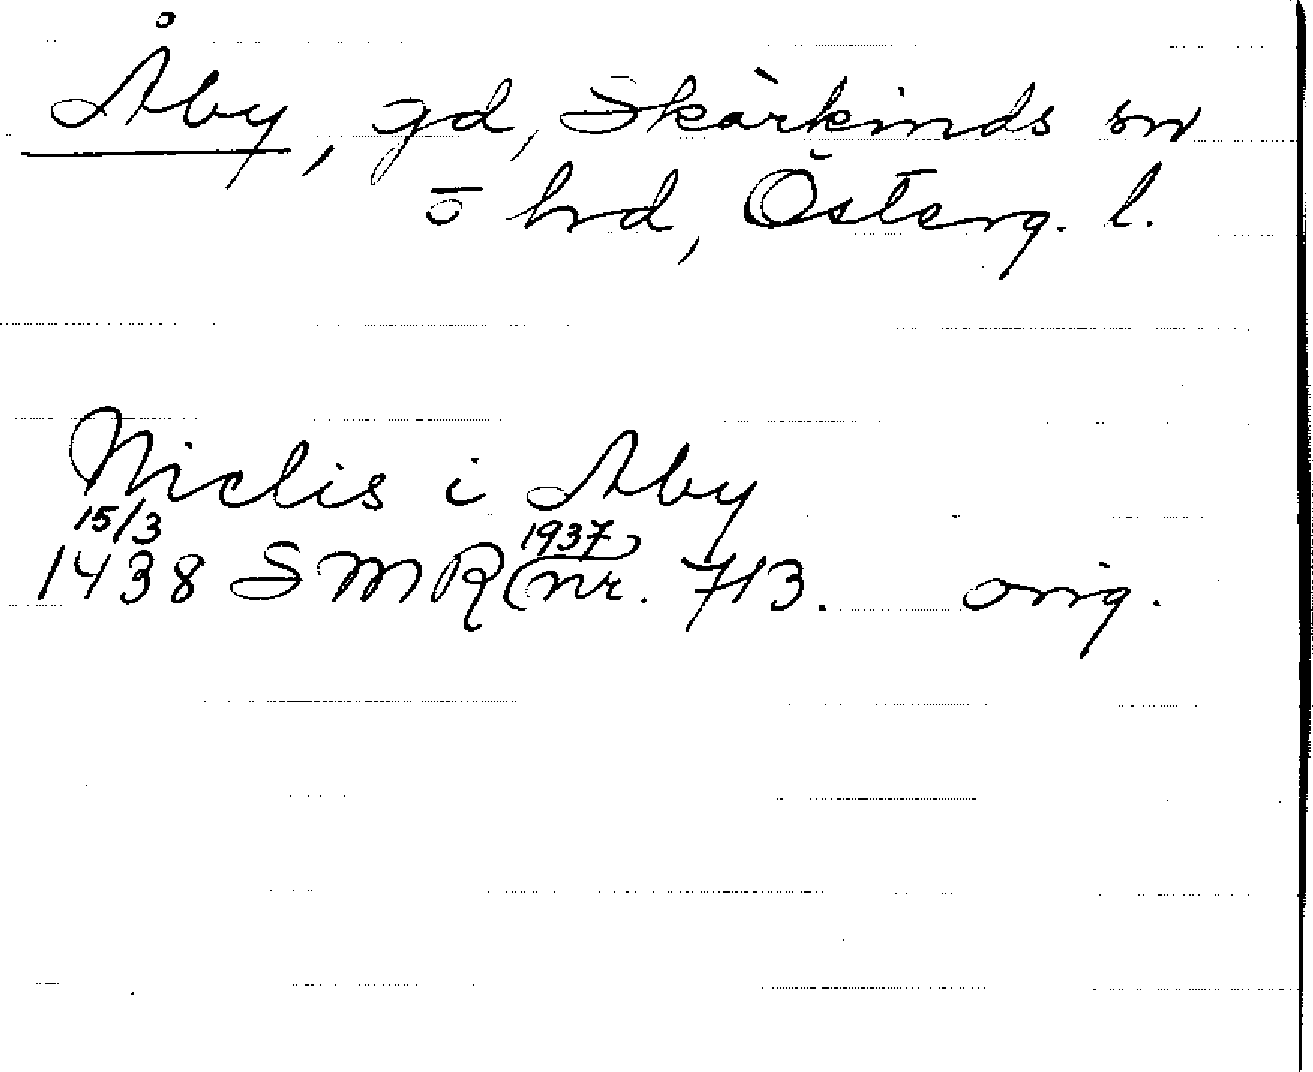 Åby, gd, Skärkinds sn
o hrd, Österg. l.
Niclis i Aby
15/3 1937
1438 SMR (nr. 713. orig.